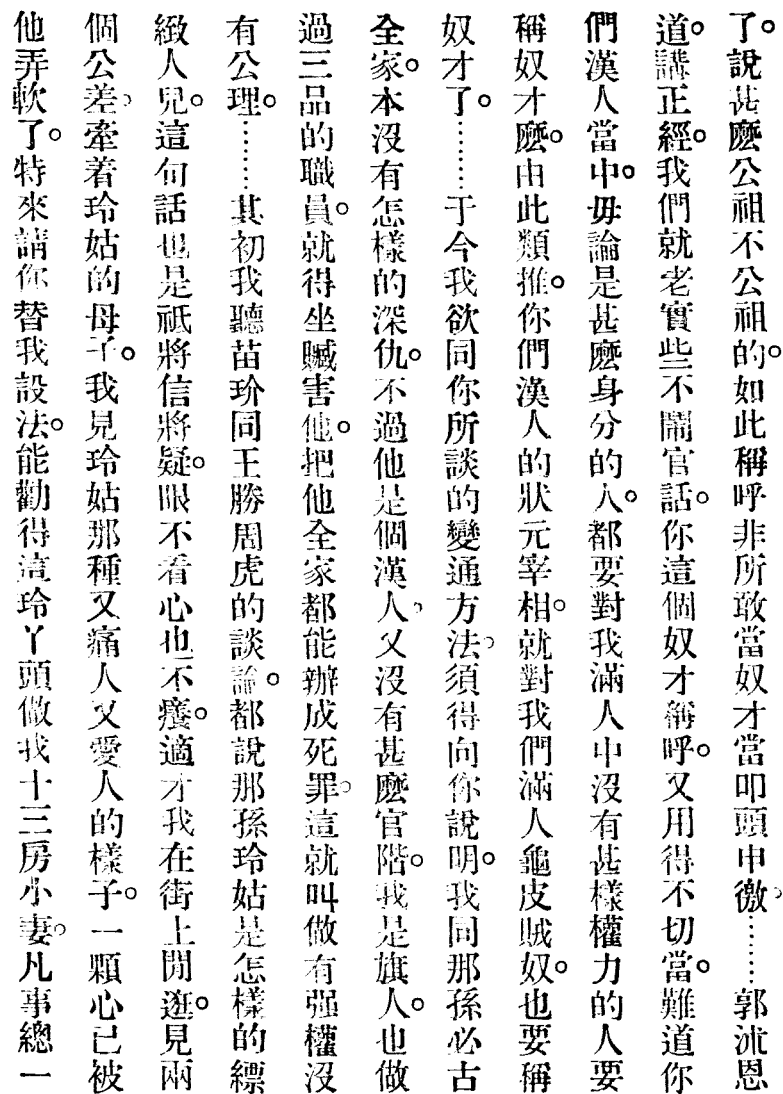 了。說甚麼公祖不公祖的。如此稱呼非所敢當奴才當叩頭申徼。……郭沭恩
道。講正經。我們就老實些不鬧官話。你這個奴才稱呼。又用得不切當。難道你
們漢人當中。毋論是甚麼身分的人。都要對我滿人中沒有甚樣權力的人要
稱奴才麼。由此類推。你們漢人的狀元宰相。就對我們滿人龜皮賊奴。也要稱
奴才了。……于今我欲同你所談的變通方法。須得向你說明。我同那孫必古
全家。本沒有怎樣的深仇。不過他是個漢人。又沒有甚麼官階。我是旗人。也做
過三品的職員。就得坐贓害他。把他全家都能辦成死罪。這就叫做有强權沒
有公理。……其初我聽苗玠同王勝周虎的談論。都說那孫玲姑是怎樣的縹
緻人兒。這句話也是祗將信將疑。眼不看心也不癢。適才我在街上閒逛。見兩
個公差。牽着玲姑的母子。我見玲姑那種又痛人又愛人的樣子。一顆心已被
他弄軟了。特來請你替我設法。能勸得這玲丫頭做我十三房小妻。凡事總一